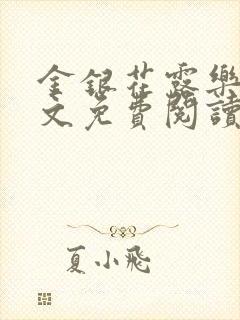 金銀花露樂
文免費閱讀
夏小飛